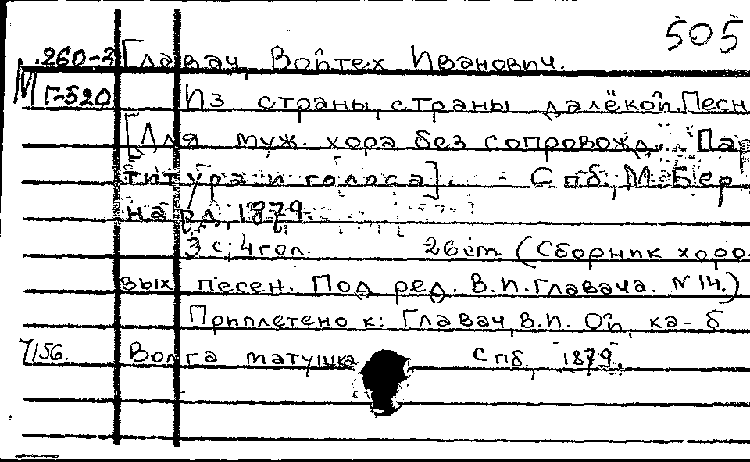 505
260-2 Главач, Войтех Иванович.
М Г-520 Из страны, страны далёкой. Песн
[Для муж. хора без сопровожд. Пар
титура и голоса]. - Спб, М. Бер
нард, 1879.
3 с; 4 гол. 26 см (Сборник хоро
вых песен. Под ред. В.И. Главача. № 14.)
Приплетено к: Главач, В.И. Ой, ка- б
7/56. Волга матушка Спб, 1879.